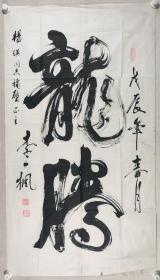 戊辰年春月
龍騰
楊洪同志補壁正之
李一楓